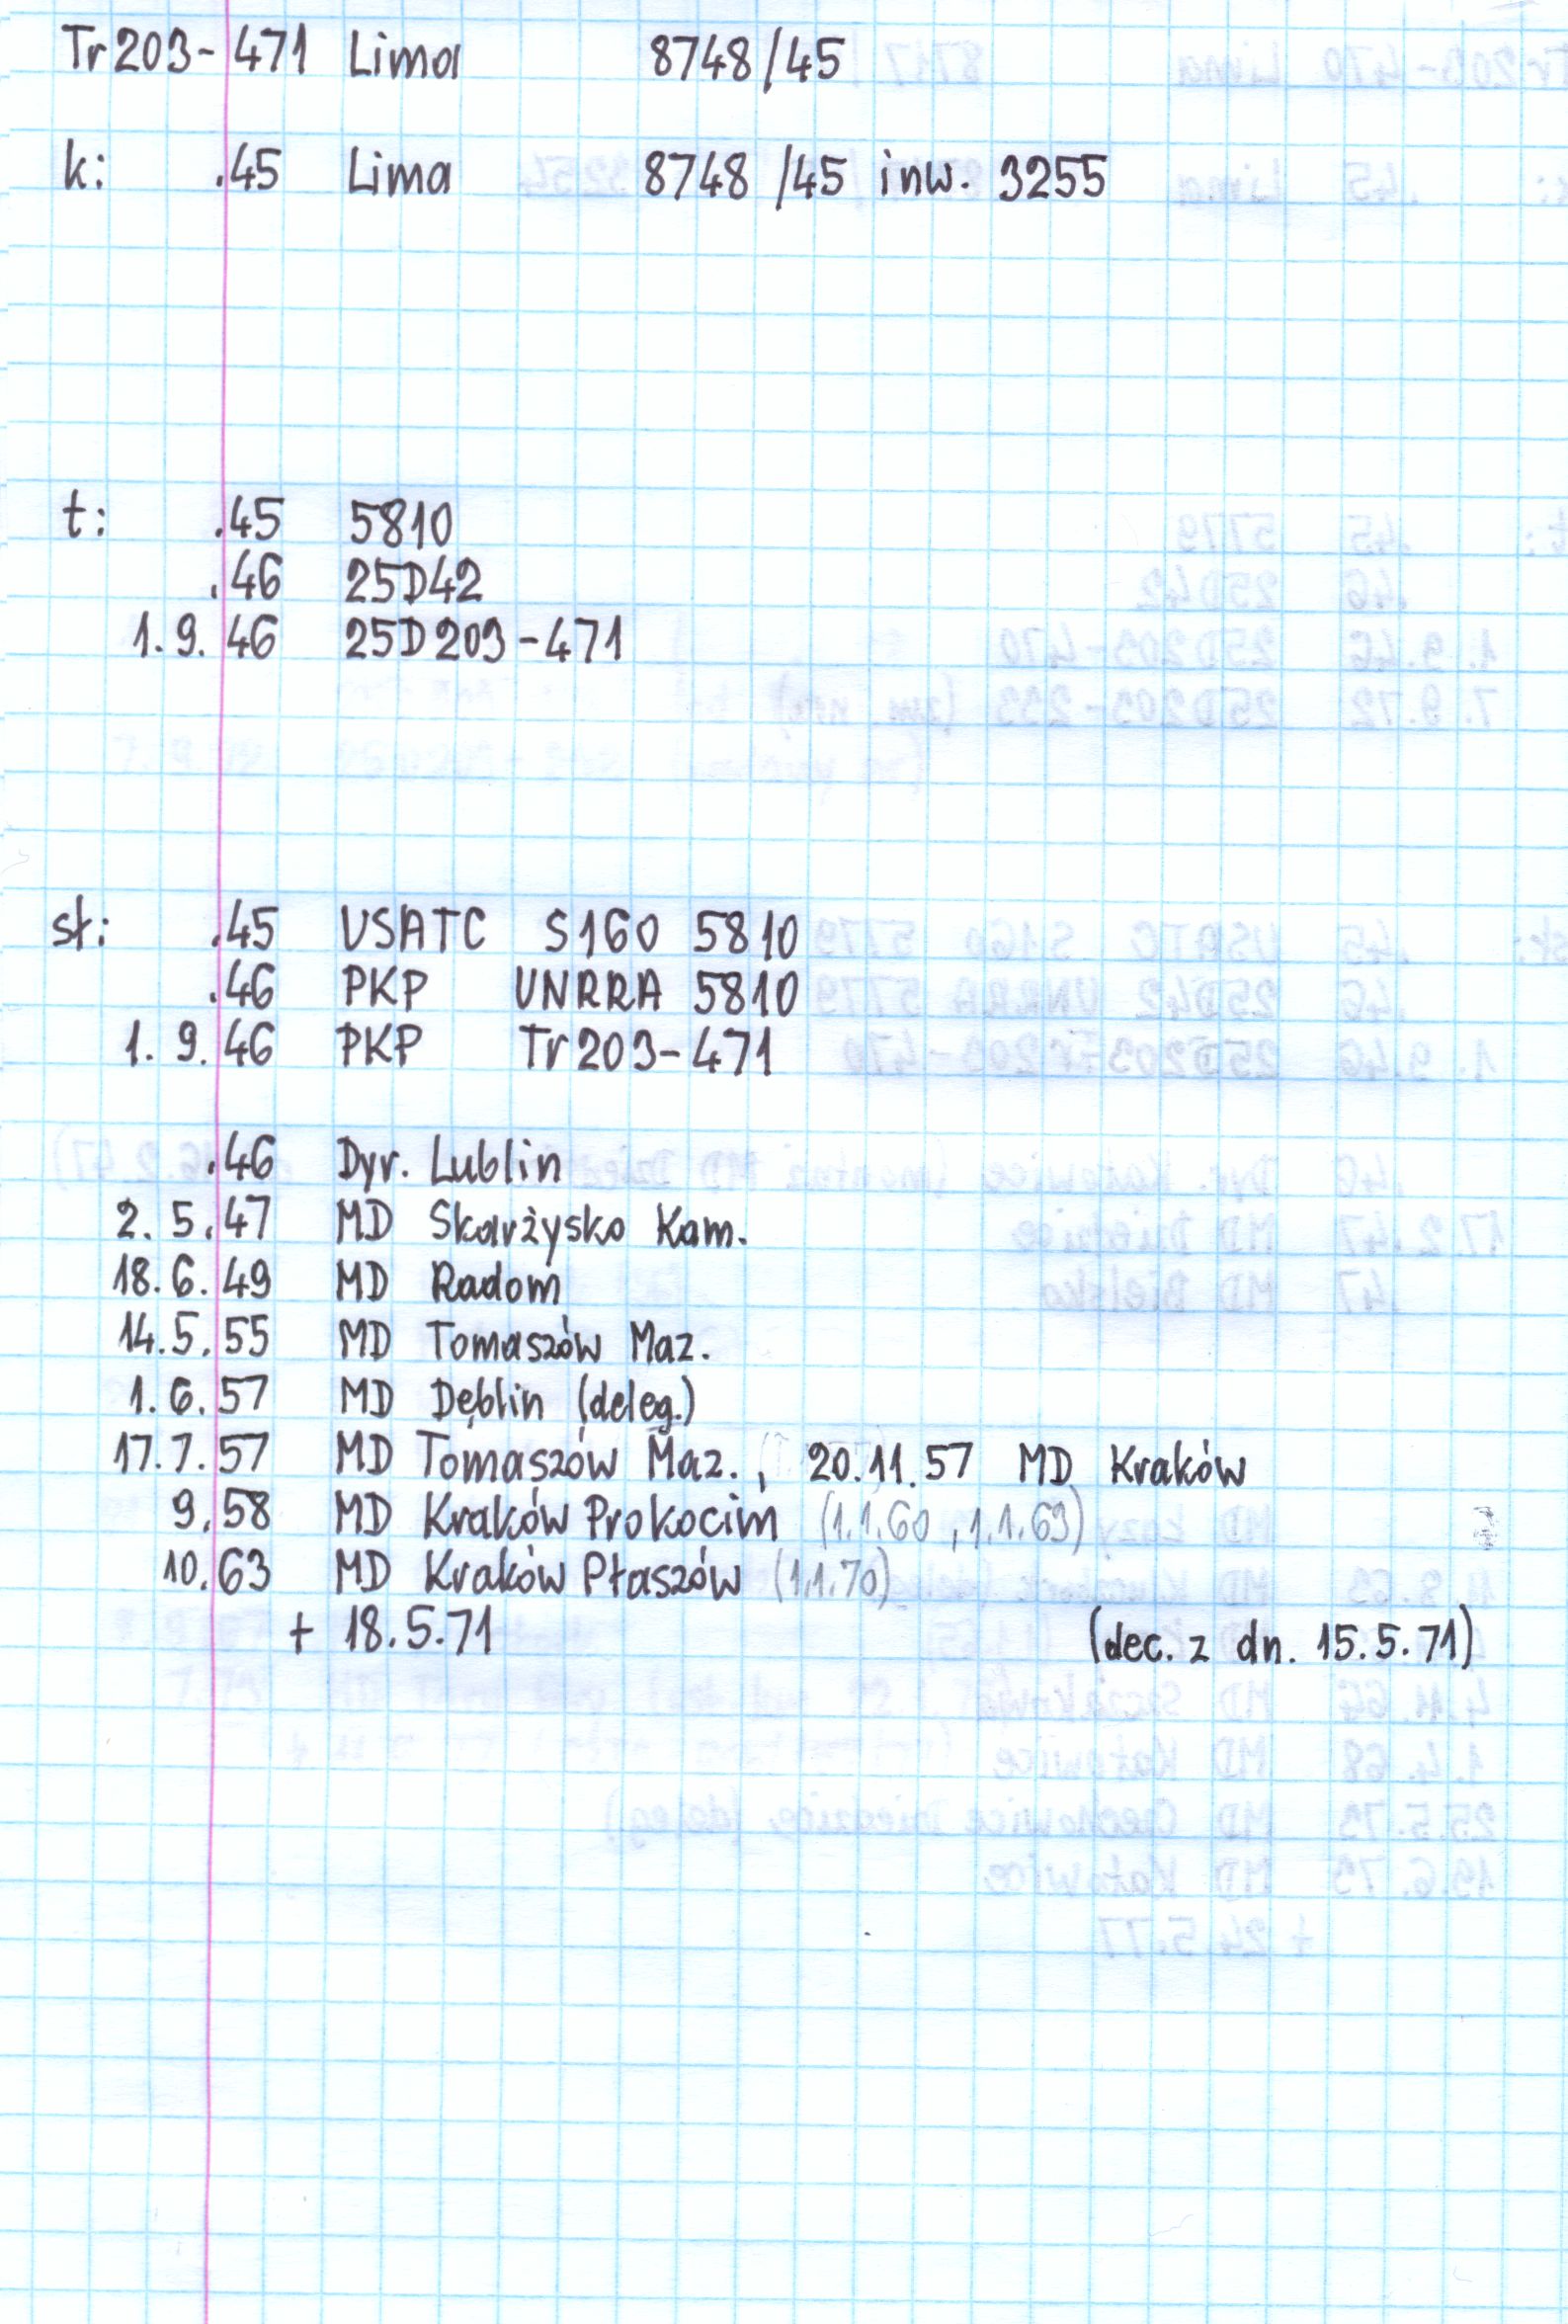 Tr203-471 Lima 8748/45
k: .45 Lima 8748 /45 inw. 3255
t: .45 5810
.46 25D42
1.9.46 25D203-471
st: .45 USATC S160 5810
.46 PKP UNRRA 5810
1.9.46 PKP Tr203-471
.46 Dyr. Lublin
2.5.47 MD Skarżysko Kam.
18.6.49 MD Radom
14.5.55 MD Tomaszów Maz.
1.6.57 MD Dęblin (deleg.)
17.7.57 MD Tomaszów Maz., 20.11.57 MD Kraków
9.58 MD Kraków Prokocim (1.1.60, 1.1.63)
10.63 MD Kraków Płaszów (1.1.70)
+ 18.5.71 (dec. z dn. 15.5.71)